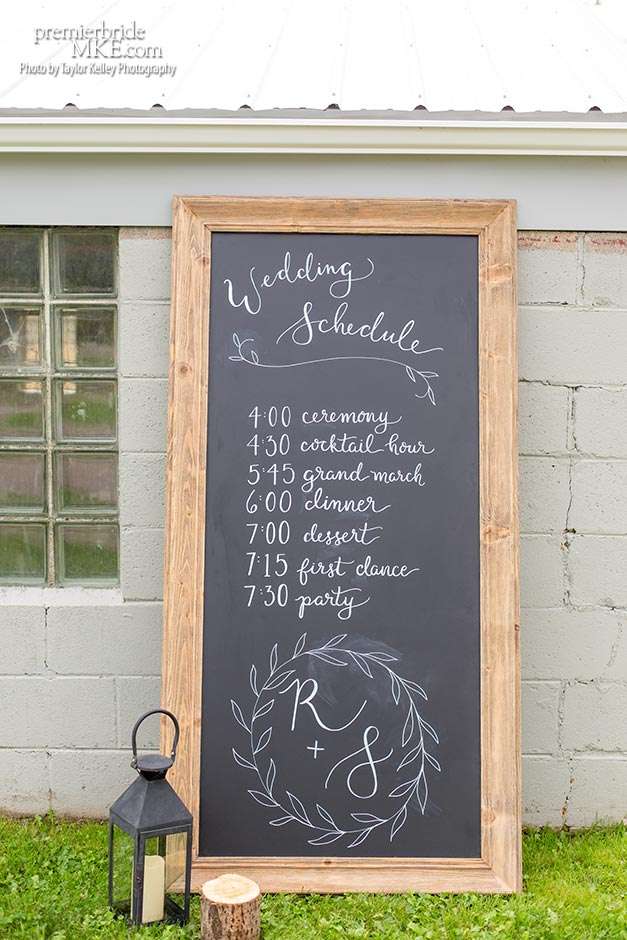 premierbride
MKE.com
Photo by Taylor Kelley Photography
Wedding
Schedule
4:00 ceremony
4:30 cocktail hour
5:45 grand march
6:00 dinner
7:00 dessert
7:15 first dance
7:30 party
R
+ S